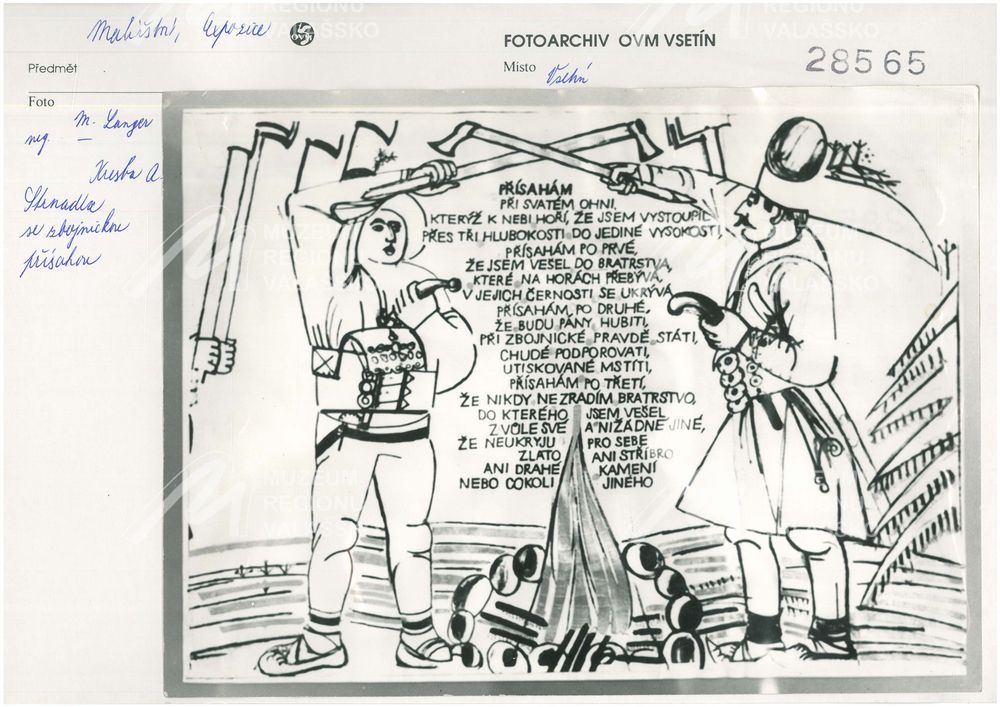 Malířství, Expozice
OVM
FOTOARCHIV OVM VSETÍN
Předmět
Místo Vsetín
28565
Foto
M. Langer
neg. —
Kresba A.
Strnadla
se zbojnickou
přísahou
PŘÍSAHÁM
PŘI SVATÉM OHNI,
KTERÝŽ K NEBI HOŘÍ, ŽE JSEM VYSTOUPIL
PŘES TŘI HLUBOKOSTI DO JEDINÉ VYSOKOSTI,
PŘÍSAHÁM PO PRVÉ,
ŽE JSEM VEŠEL DO BRATRSTVA,
KTERÉ NA HORÁCH PŘEBÝVÁ,
V JEJICH ČERNOSTI SE UKRÝVÁ
PŘÍSAHÁM, PO DRUHÉ,
ŽE BUDU PÁNY HUBITI,
PŘI ZBOJNICKÉ PRAVDĚ STÁTI,
CHUDÉ PODPOROVATI,
UTISKOVANÉ MSTÍTI,
PŘÍSAHÁM PO TŘETÍ,
ŽE NIKDY NEZRADÍM BRATRSTVO,
DO KTERÉHO JSEM VEŠEL
Z VŮLE SVÉ A NIŽÁDNÉ JINÉ,
ŽE NEUKRYJU PRO SEBE
ZLATO ANI STŘÍBRO
ANI DRAHÉ KAMENÍ
NEBO COKOLI JINÉHO
MUZEUM
REGIONU
VALAŠSKO